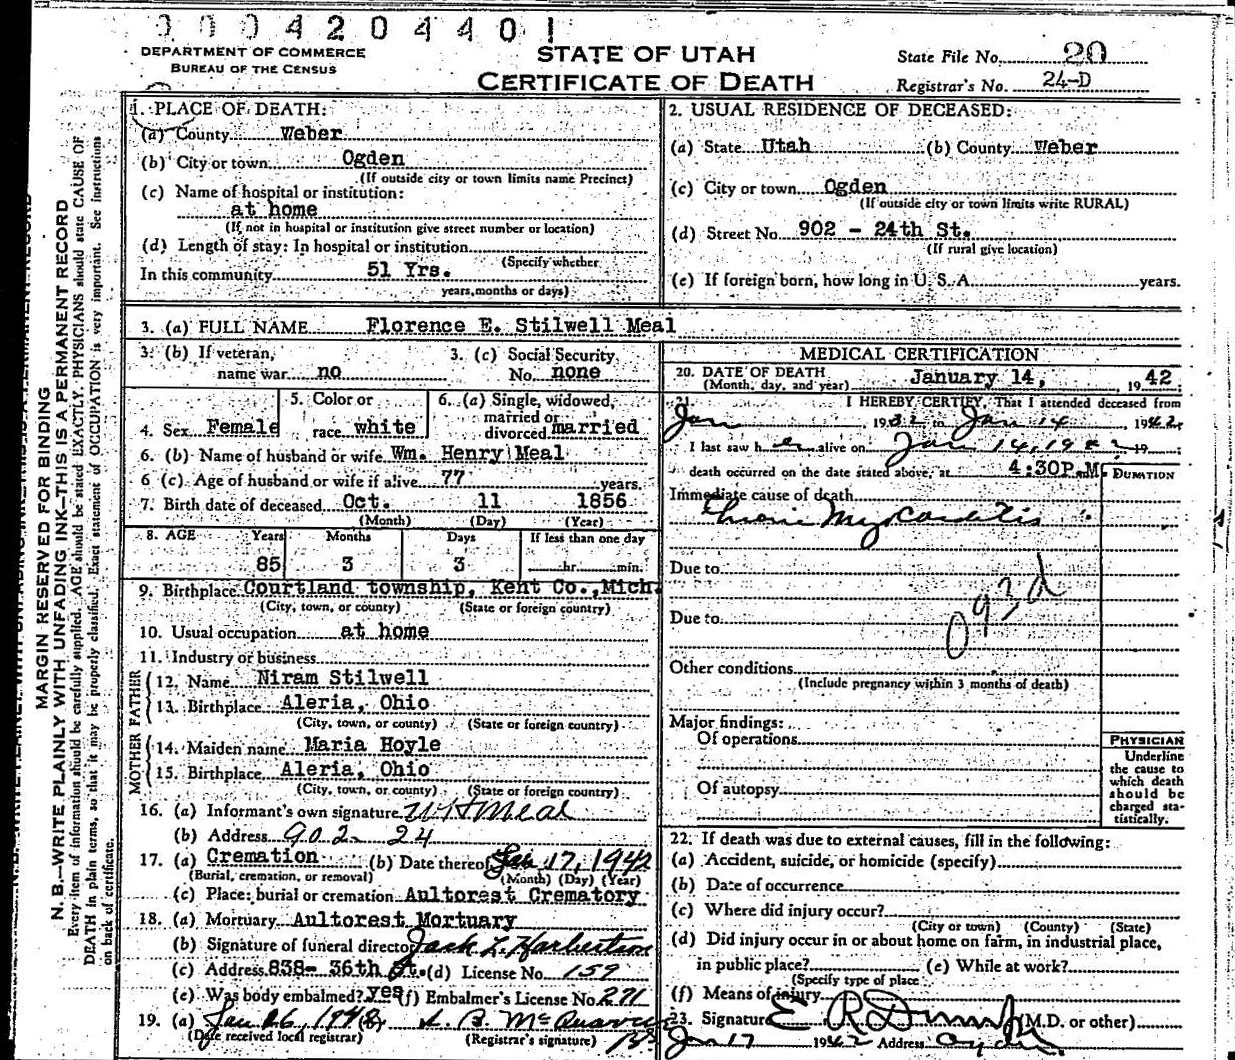 0004204401
DEPARTMENT OF COMMERCE
BUREAU OF THE CENSUS
STATE OF UTAH
CERTIFICATE OF DEATH
State File No. 20
Registrar's No. 24-D
MARGIN RESERVED FOR BINDING
N. B.—WRITE PLAINLY WITH UNFADING INK—THIS IS A PERMANENT RECORD
Every item of information should be carefully supplied. AGE should be stated EXACTLY. PHYSICIANS should state CAUSE OF
DEATH in plain terms, so that it may be properly classified. Exact statement of OCCUPATION is very important. See instructions
on back of certificate.
1. PLACE OF DEATH:
(a) County Weber
(b) City or town Ogden
(If outside city or town limits name Precinct)
(c) Name of hospital or institution:
at home
(If not in hospital or institution give street number or location)
(d) Length of stay: In hospital or institution
(Specify whether
In this community 51 Yrs.
years, months or days)
2. USUAL RESIDENCE OF DECEASED:
(a) State Utah (b) County Weber
(c) City or town Ogden
(If outside city or town limits write RURAL)
(d) Street No. 902 - 24th St.
(If rural give location)
(e) If foreign born, how long in U. S. A. years.
3. (a) FULL NAME Florence E. Stilwell Meal
3. (b) If veteran,
name war no
3. (c) Social Security
No. none
4. Sex Female
5. Color or
race white
6. (a) Single, widowed,
married or
divorced married
6. (b) Name of husband or wife Wm. Henry Meal
6 (c) Age of husband or wife if alive 77 years.
7. Birth date of deceased Oct. 11 1856
(Month) (Day) (Year)
8. AGE Years Months Days If less than one day
85 3 3 hr. min.
9. Birthplace Courtland township, Kent Co., Mich.
(City, town, or county) (State or foreign country)
10. Usual occupation at home
11. Industry or business
FATHER
12. Name Niram Stilwell
13. Birthplace Aleria, Ohio
(City, town, or county) (State or foreign country)
MOTHER
14. Maiden name Maria Hoyle
15. Birthplace Aleria, Ohio
(City, town, or county) (State or foreign country)
16. (a) Informant's own signature W H Meal
(b) Address 902 - 24
17. (a) Cremation (b) Date thereof Jan 17, 1942
(Burial, cremation, or removal) (Month) (Day) (Year)
(c) Place: burial or cremation Aultorest Crematory
18. (a) Mortuary Aultorest Mortuary
(b) Signature of funeral director Jack L. Harbertson
(c) Address 838- 36th St. (d) License No. 159
(e) Was body embalmed? yes (f) Embalmer's License No. 271
19. (a) Jan
(Date received local registrar) (Registrar's signature)
MEDICAL CERTIFICATION
20. DATE OF DEATH
(Month, day, and year) January 14, 1942
21. I HEREBY CERTIFY, That I attended deceased from
Jan 1932 to Jan 14 1942
I last saw her alive on Jan 14, 19
death occurred on the date stated above, at 4:30P.M.
DURATION
Immediate cause of death
Chronic Myocarditis
Due to
093d
Due to
Other conditions
(Include pregnancy within 3 months of death)
Major findings:
Of operations
Of autopsy
PHYSICIAN
Underline
the cause to
which death
should be
charged sta-
tistically.
22. If death was due to external causes, fill in the following:
(a) Accident, suicide, or homicide (specify)
(b) Date of occurrence
(c) Where did injury occur?
(City or town) (County) (State)
(d) Did injury occur in or about home on farm, in industrial place,
in public place? (e) While at work?
(Specify type of place
(f) Means of injury
23. Signature E R (M.D. or other)
Jan 17 1942 Address Ogden